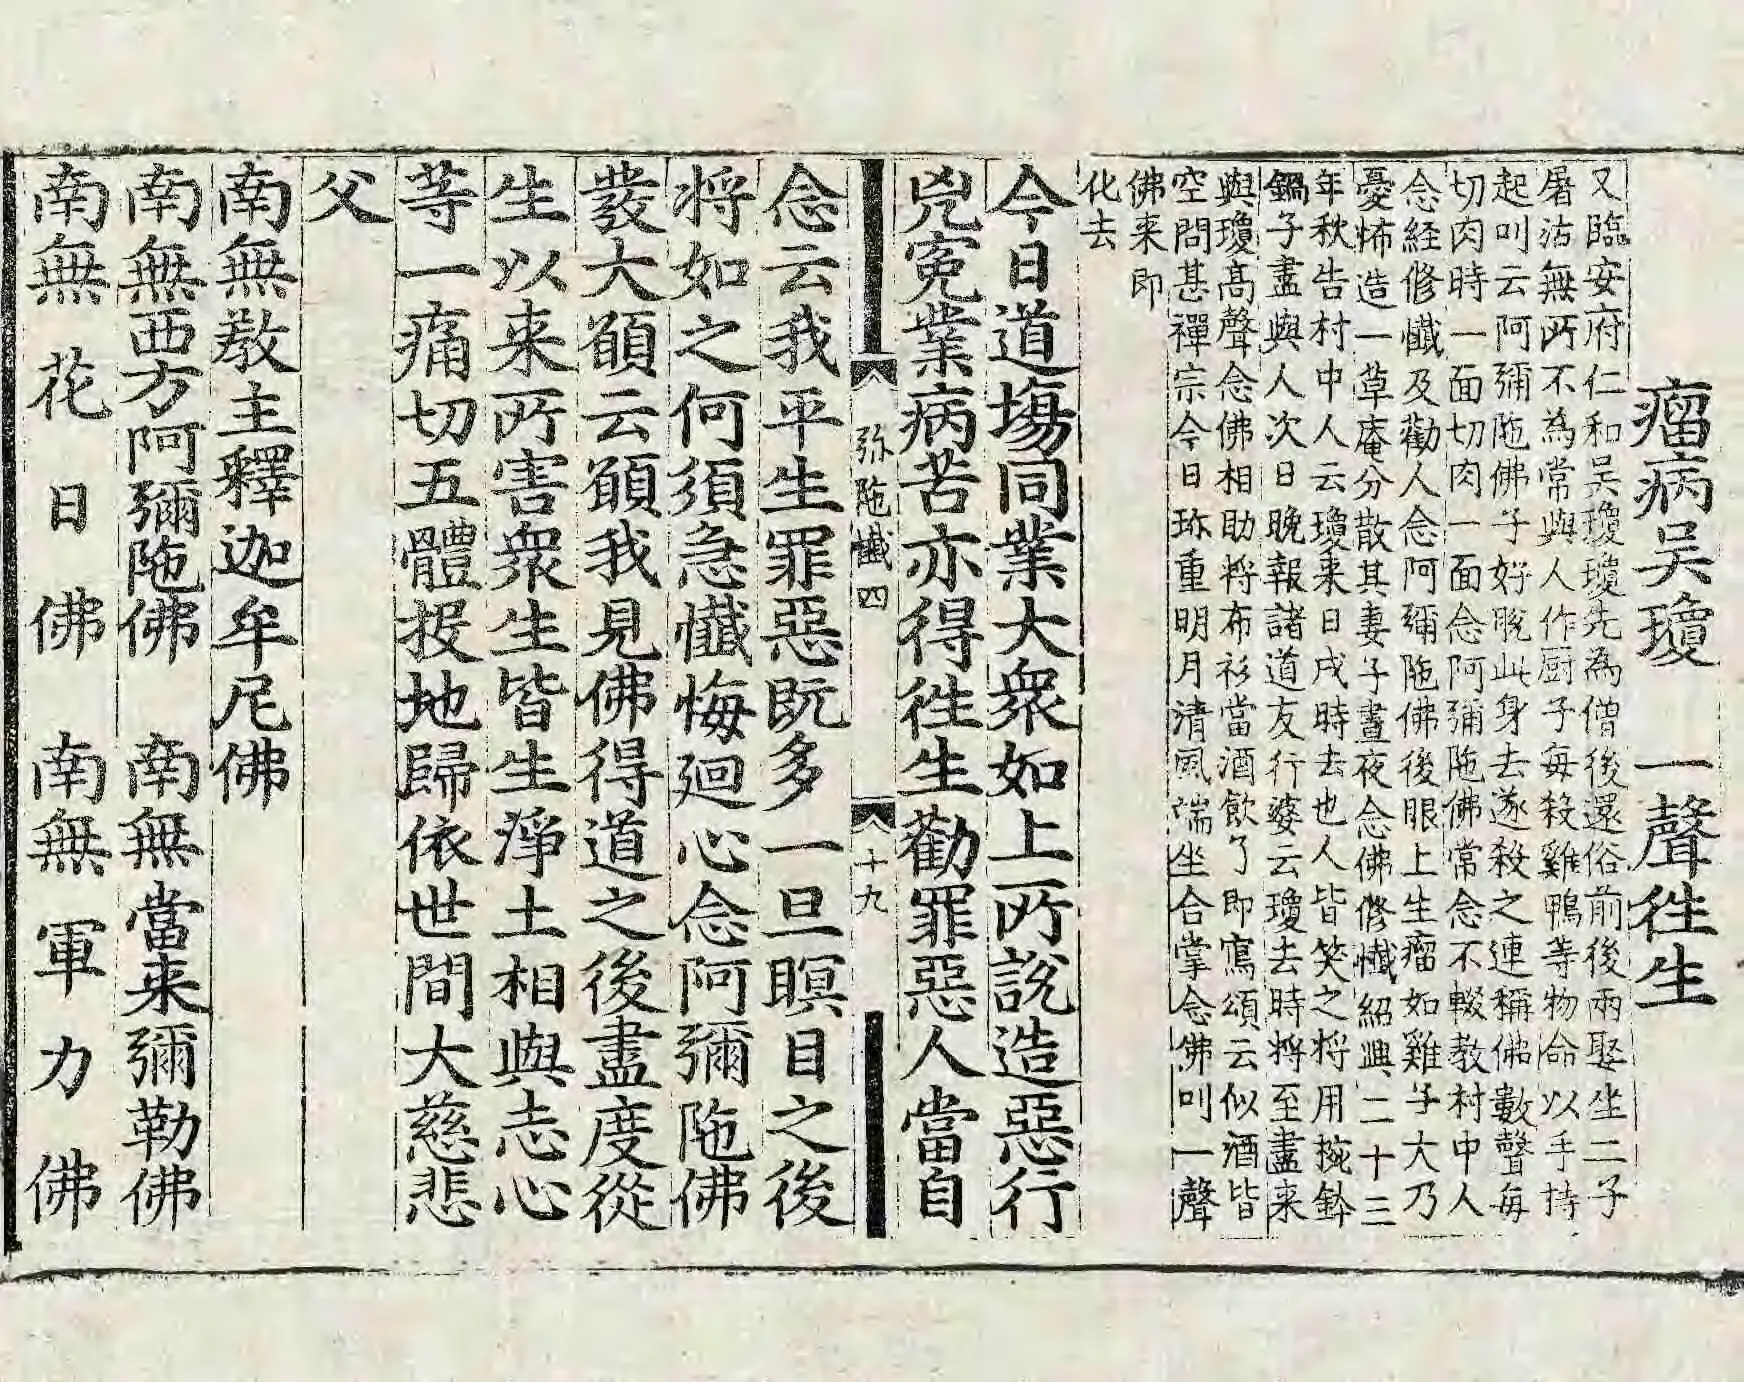 瘤病吴瓊　一聲徃生
又臨安府仁和吴瓊瓊先為僧後還俗前後兩娶坐二子
屠沽無所不為常與人作厨子每殺雞鴨等物命以手持
起叫云阿彌陁佛子好脫此身去遂殺之連稱佛數聲每
切肉時一面切肉一面念阿彌陁佛常念不輟教村中人
念経修懺及勸人念阿彌陁佛後眼上生瘤如雞子大乃
憂怖造一草庵分散其妻子晝夜念佛修懺紹興二十三
年秋告村中人云瓊来日戌時去也人皆笑之将用椀鉢
鍋子盡與人次日晚報諸道友行婆云瓊去時将至盡来
與瓊髙聲念佛相助将布衫當酒飲了即寫頌云似酒皆
空問甚禪宗今日珎重明月清風端坐合掌念佛叫一聲
佛来即
化去
今日道塲同業大衆如上所說造惡行
兇寃業病苦亦得徃生勸罪惡人當自
弥陁懺四
十九
念云我平生罪惡旣多一旦瞑目之後
将如之何須急懺悔廻心念阿彌陁佛
發大願云願我見佛得道之後盡度從
生以来所害衆生皆生淨土相與志心
等一痛切五體投地歸依世間大慈悲
父
南無教主釋迦牟尼佛
南無西方阿彌陁佛　南無當来彌勒佛
南無花日佛　南無軍力佛